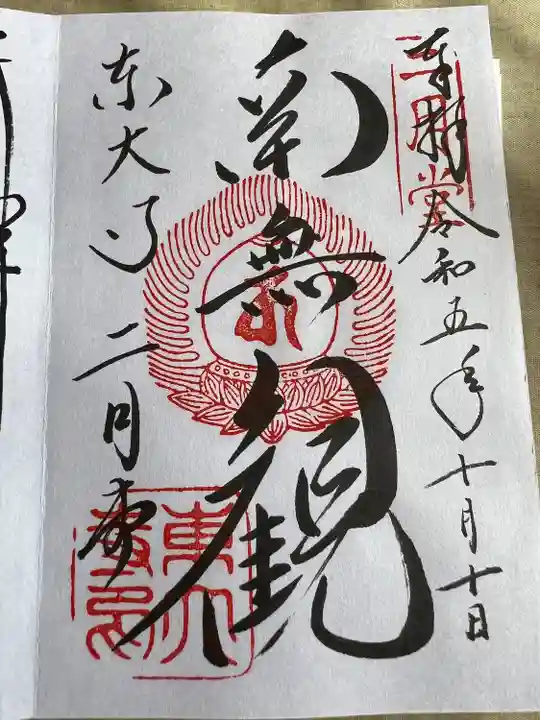 奉拝 令和五年十月十日
二月堂
南無観
東大寺 二月堂
東大寺印